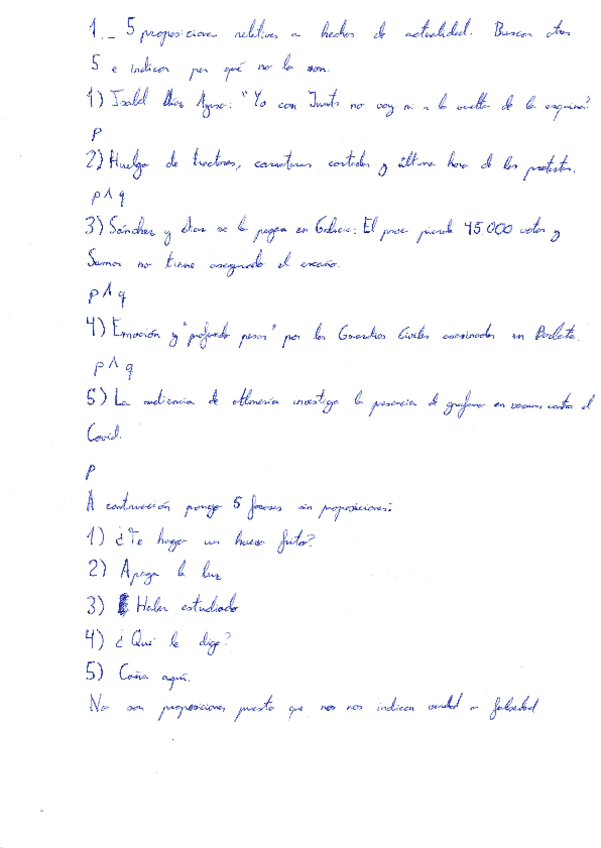 1._ 5 proposiciones relativas a hechos de actualidad. Buscar otras
5 e indicar por qué no lo son.
1) Isabel Díaz Ayuso: "Yo con Junts no voy ni a la vuelta de la esquina"
p
2) Huelga de tractores, carreteras cortadas y última hora de las protestas.
p ∧ q
3) Sánchez y Díaz se la pegan en Galicia: El psoe pierde 45000 votos y
Sumar no tiene asegurado el escaño.
p ∧ q
4) Emoción y "profundo pesar" por los Guardias Civiles asesinados en Barbate.
p ∧ q
5) La audiencia de Almería investiga la presencia de grafeno en vacunas contra el
Covid.
p
A continuación pongo 5 frases sin proposiciones:
1) ¿Te hago un huevo frito?
2) Apaga la luz
3) Haber estudiado
4) ¿Qué le digo?
5) aquí.
No son proposiciones puesto que nos nos indican verdad o falsedad